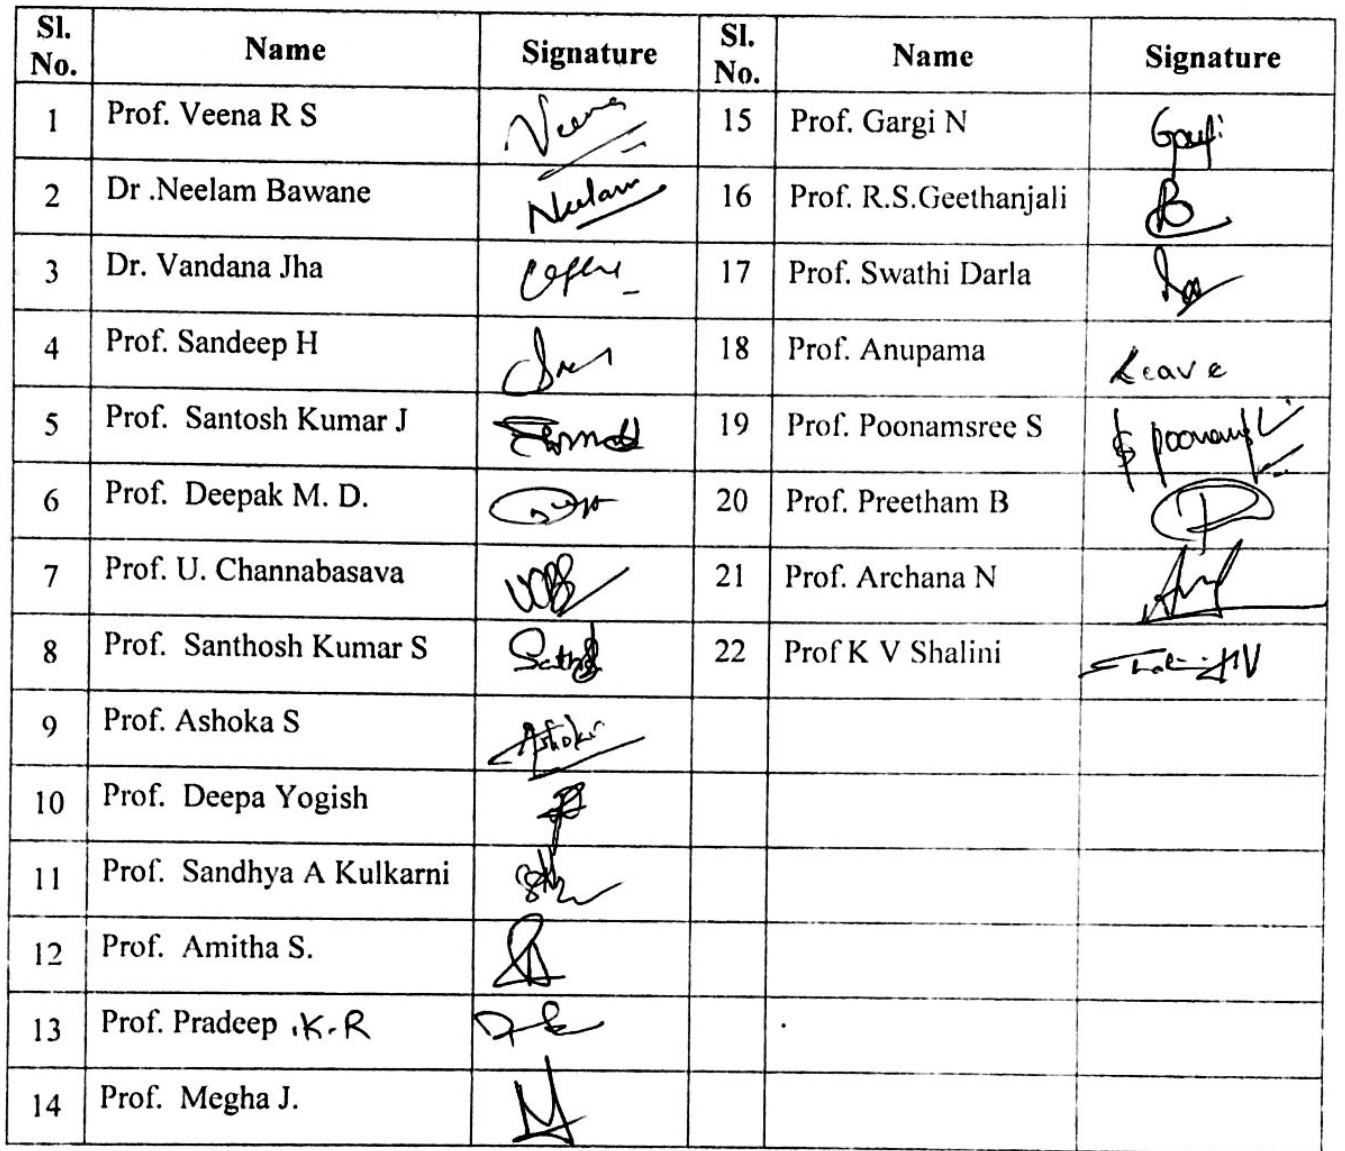 Sl. No. Name Signature Sl. No. Name Signature
1 Prof. Veena R S Veena 15 Prof. Gargi N Gargi
2 Dr .Neelam Bawane Neelam 16 Prof. R.S.Geethanjali
3 Dr. Vandana Jha 17 Prof. Swathi Darla
4 Prof. Sandeep H 18 Prof. Anupama Leave
5 Prof. Santosh Kumar J 19 Prof. Poonamsree S
6 Prof. Deepak M. D. 20 Prof. Preetham B
7 Prof. U. Channabasava 21 Prof. Archana N
8 Prof. Santhosh Kumar S 22 Prof K V Shalini
9 Prof. Ashoka S Ashoka
10 Prof. Deepa Yogish
11 Prof. Sandhya A Kulkarni
12 Prof. Amitha S.
13 Prof. Pradeep .K.R
14 Prof. Megha J.